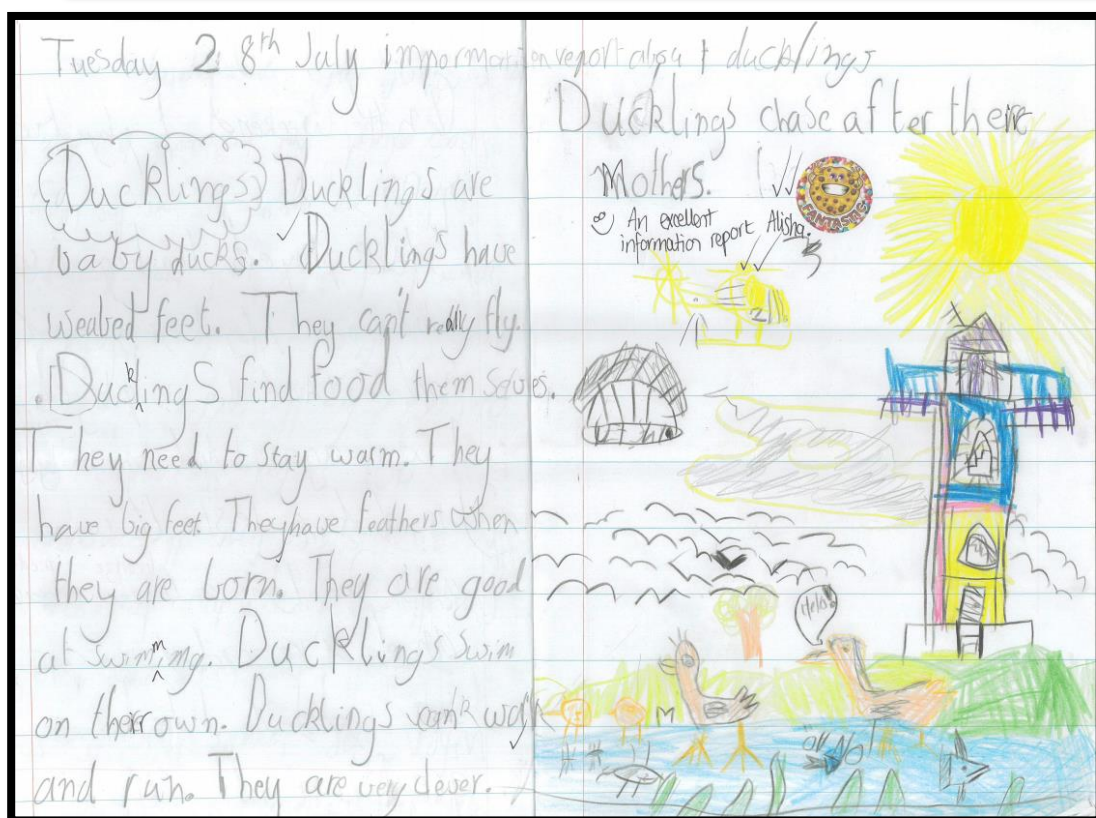 Tuesday 28th July impormation report about ducklings
Ducklings Ducklings are
baby ducks. Ducklings have
weabed feet. They can't really fly.
. Ducklings find food them selves.
They need to stay warm. They
have big feet. They have feathers when
they are born. They are good
at swimming. Ducklings swim
on their own. Ducklings can walk
and run. They are very clever.
Ducklings chase after there
Mothers.
FANTASTIC
An excellent
information report Alisha.
2
Hello!